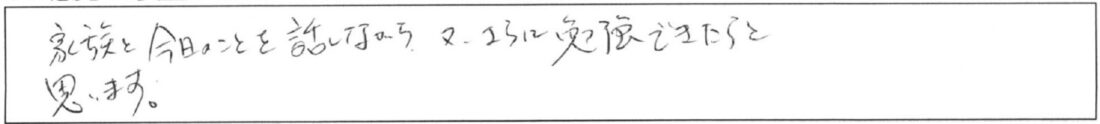 家族と今日のことを話しながら 又、さらに勉強できたらと
思います。